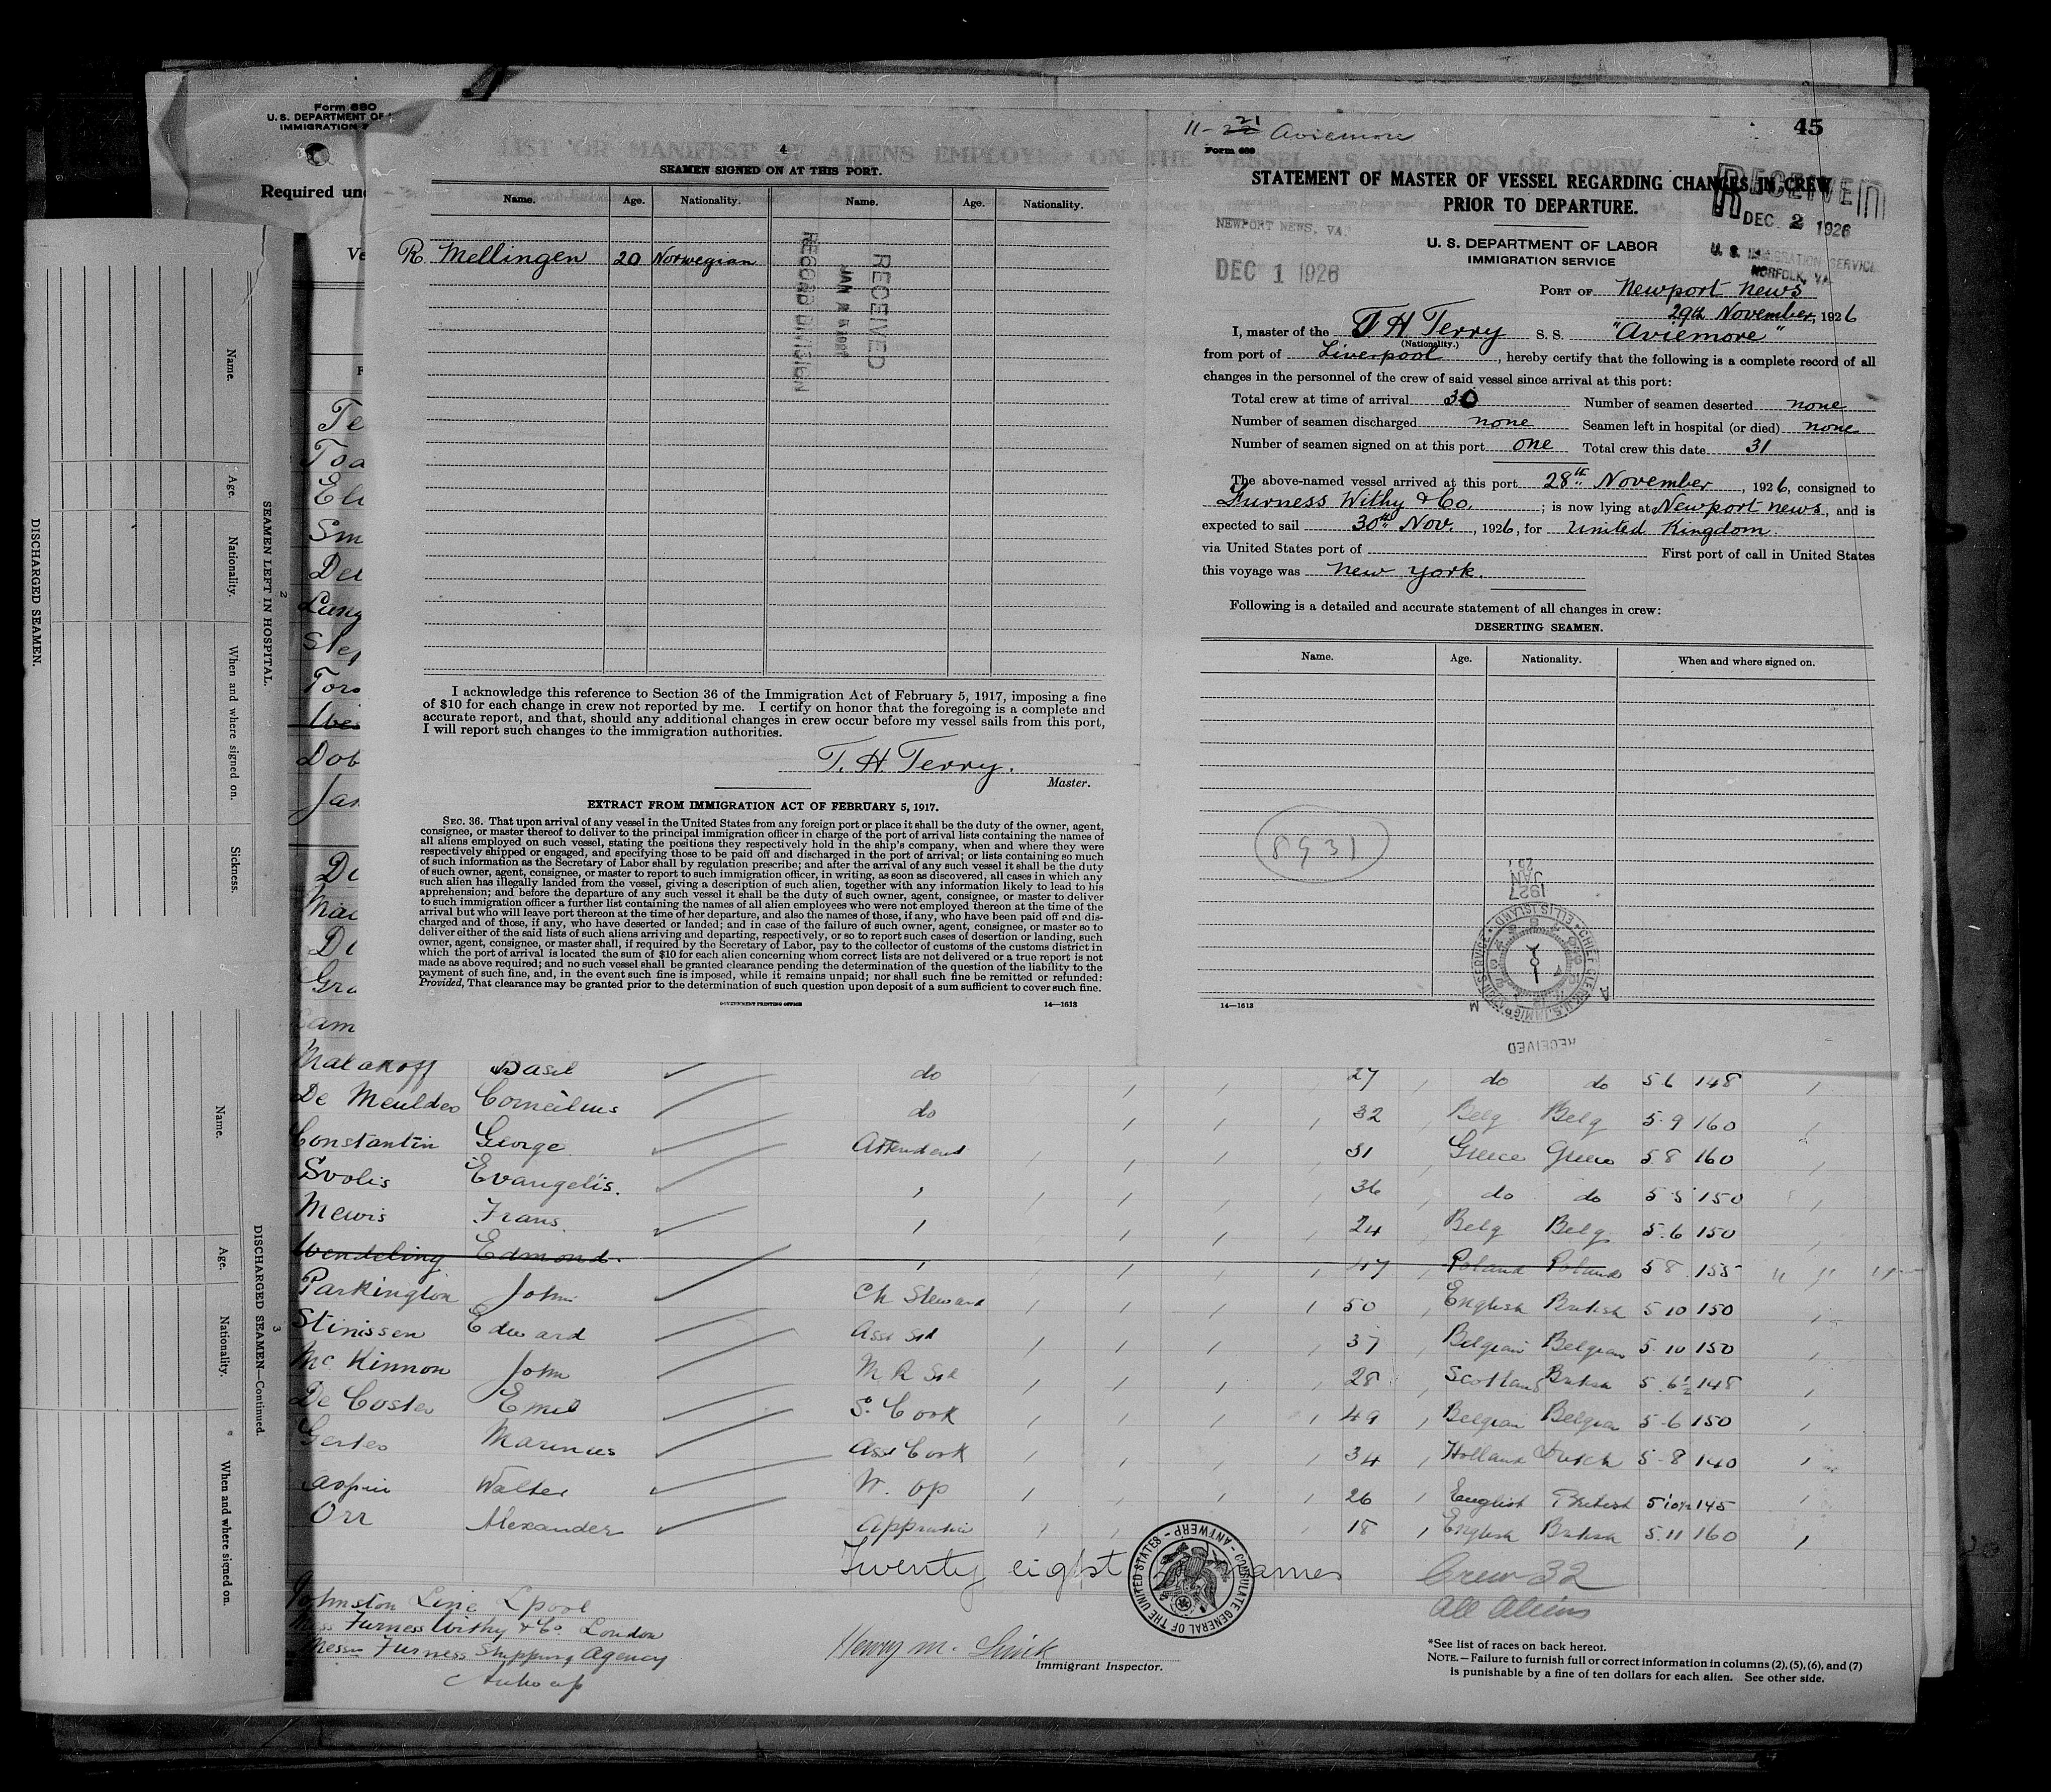 Form 680
U. S. DEPARTMENT OF
IMMIGRATION
Required und
Ve
Te
Toa
Ele
Sm
De
Lang
Step
Toro
Wes
Dob
Jas
Da
Mac
D
Gra
am
DISCHARGED SEAMEN.
Name.
Age.
Nationality.
When and where signed on.
Sickness.
2
SEAMEN LEFT IN HOSPITAL.
3
DISCHARGED SEAMEN—Continued.
Name.
Age.
Nationality.
When and where signed on.
4
SEAMEN SIGNED ON AT THIS PORT.
Name. Age. Nationality. Name. Age. Nationality.
R. Mellingen 20 Norwegian
RECEIVED
JAN
RECORD DIVISION
I acknowledge this reference to Section 36 of the Immigration Act of February 5, 1917, imposing a fine
of $10 for each change in crew not reported by me. I certify on honor that the foregoing is a complete and
accurate report, and that, should any additional changes in crew occur before my vessel sails from this port,
I will report such changes to the immigration authorities.
T. H Terry.
Master.
EXTRACT FROM IMMIGRATION ACT OF FEBRUARY 5, 1917.
SEC. 36. That upon arrival of any vessel in the United States from any foreign port or place it shall be the duty of the owner, agent,
consignee, or master thereof to deliver to the principal immigration officer in charge of the port of arrival lists containing the names of
all aliens employed on such vessel, stating the positions they respectively hold in the ship's company, when and where they were
respectively shipped or engaged, and specifying those to be paid off and discharged in the port of arrival; or lists containing so much
of such information as the Secretary of Labor shall by regulation prescribe; and after the arrival of any such vessel it shall be the duty
of such owner, agent, consignee, or master to report to such immigration officer, in writing, as soon as discovered, all cases in which any
such alien has illegally landed from the vessel, giving a description of such alien, together with any information likely to lead to his
apprehension; and before the departure of any such vessel it shall be the duty of such owner, agent, consignee, or master to deliver
to such immigration officer a further list containing the names of all alien employees who were not employed thereon at the time of the
arrival but who will leave port thereon at the time of her departure, and also the names of those, if any, who have been paid off and dis-
charged and of those, if any, who have deserted or landed; and in case of the failure of such owner, agent, consignee, or master so to
deliver either of the said lists of such aliens arriving and departing, respectively, or so to report such cases of desertion or landing, such
owner, agent, consignee, or master shall, if required by the Secretary of Labor, pay to the collector of customs of the customs district in
which the port of arrival is located the sum of $10 for each alien concerning whom correct lists are not delivered or a true report is not
made as above required; and no such vessel shall be granted clearance pending the determination of the question of the liability to the
payment of such fine, and, in the event such fine is imposed, while it remains unpaid; nor shall such fine be remitted or refunded:
Provided, That clearance may be granted prior to the determination of such question upon deposit of a sum sufficient to cover such fine.
GOVERNMENT PRINTING OFFICE 14—1613
LIST OR MANIFEST OF ALIENS EMPLOYED ON THE VESSEL AS MEMBERS OF CREW
11-22 21 Aviemore
45
Form 689
STATEMENT OF MASTER OF VESSEL REGARDING CHANGES IN CREW
PRIOR TO DEPARTURE.
RECEIVED
DEC 2 1926
U. S. IMMIGRATION SERVICE
NORFOLK, VA.
NEWPORT NEWS, VA.
DEC 1 1926
U. S. DEPARTMENT OF LABOR
IMMIGRATION SERVICE
PORT OF Newport News
29th November, 1926
I, master of the T H Terry S. S. "Aviemore"
(Nationality.)
from port of Liverpool, hereby certify that the following is a complete record of all
changes in the personnel of the crew of said vessel since arrival at this port:
Total crew at time of arrival 30 Number of seamen deserted none
Number of seamen discharged none Seamen left in hospital (or died) none
Number of seamen signed on at this port one Total crew this date 31
The above-named vessel arrived at this port 28th November, 1926, consigned to
Furness Withy & Co. ; is now lying at Newport news, and is
expected to sail 30th Nov., 1926, for United Kingdom
via United States port of First port of call in United States
this voyage was New York.
Following is a detailed and accurate statement of all changes in crew:
DESERTING SEAMEN.
Name. Age. Nationality. When and where signed on.
8931
JAN
1927
CHIEF CLERK U.S. IMMIGRATION SERVICE ELLIS ISLAND
RECEIVED
14—1613
Malakoff Wasil do 27 do do 5 6 148
De Meulder Corneilius do 32 Belg Belg 5 9 160
Constantin George Attendant 31 Greece Greece 5 8 160
Svolis Evangelis. 36 do do 5 5 150
Mewis Frans 24 Belg Belg 5.6 150
Wendeling Edmond. 47 Poland Poland 5 8 155
Parkington John Ch Steward 50 English British 5 10 150
Stinissen Edward Asst Std 37 Belgian Belgian 5 10 150
McKinnon John M R Std 28 Scotland British 5 6½ 148
De Coster Emil S. Cook 49 Belgian Belgian 5 6 150
Gerter Marinus Asst Cook 34 Holland Dutch 5 8 140
Aspin Walter W. Op 26 English British 5 10½ 145
Orr Alexander Apprentice 18 English British 5.11 160
Twenty eight names
CONSULATE GENERAL OF THE UNITED STATES - ANTWERP
Crew 32
All Aliens
Johnston Line Lpool
Mess Furness Withy & Co London
Messrs Furness Shipping Agency
Antwerp
Henry M.
Immigrant Inspector.
*See list of races on back hereof.
NOTE.—Failure to furnish full or correct information in columns (2), (5), (6), and (7)
is punishable by a fine of ten dollars for each alien. See other side.